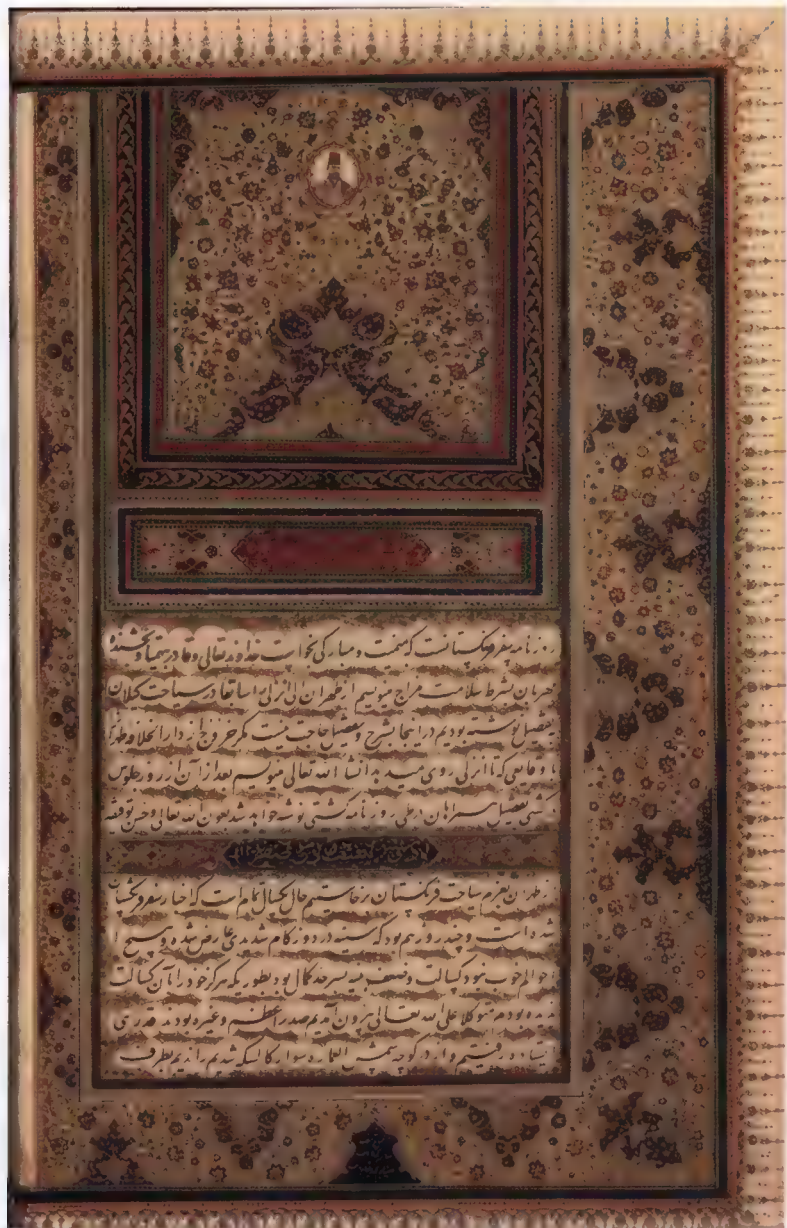 روزنامه سفر فرنگستانست که بمیمنت و مبارکی بخواست خداوند تعالی وقادر
مهربان بشرط سلامت مزاج مینویسیم از طهران الی انزلی را سابقا در سیاحت گیلان
بتفصیل نوشته بودیم در اینجا بشرح و تفصیل حاجت نیست مگر خروج از دارالخلافه طهران
با وقایعی که تا انزلی روی میدهد انشاء الله تعالی مینویسم بعد از آن از روز جلوس
کشتی تفصیل همراهان در طی روزنامه کشتی نوشته خواهد شد بعون الله تعالی وحسن توفیقه
از طهران بعزم سیاحت فرنگستان برخاستیم حال یکسال تمام است که اخبار سفر فرنگستان
شده است و چند روز هم بود که سینه درد و زکام شدیدی عارض شده و هیچ
احوالم خوب نبود کسالت وضعف بسرحد کمال بود بطوریکه هرگز خود را بآن کسالت
ندیده بودم متوکلا علی الله تعالی بیرون آمدیم صدراعظم وغیره بودند قدری
ایستاده رفتیم وارد کوچه شمس العماره سوار کالسکه شدیم راندیم بطرف